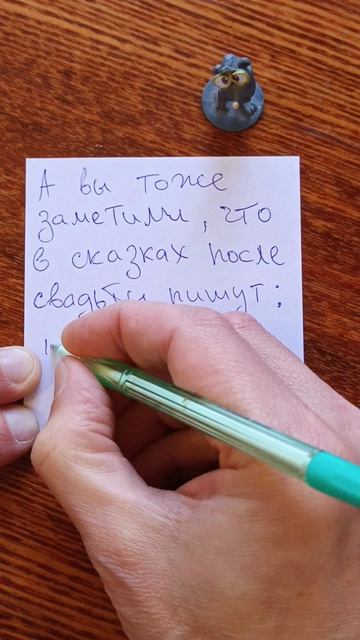 А вы тоже
заметили, что
в сказках после
свадьбы пишут: